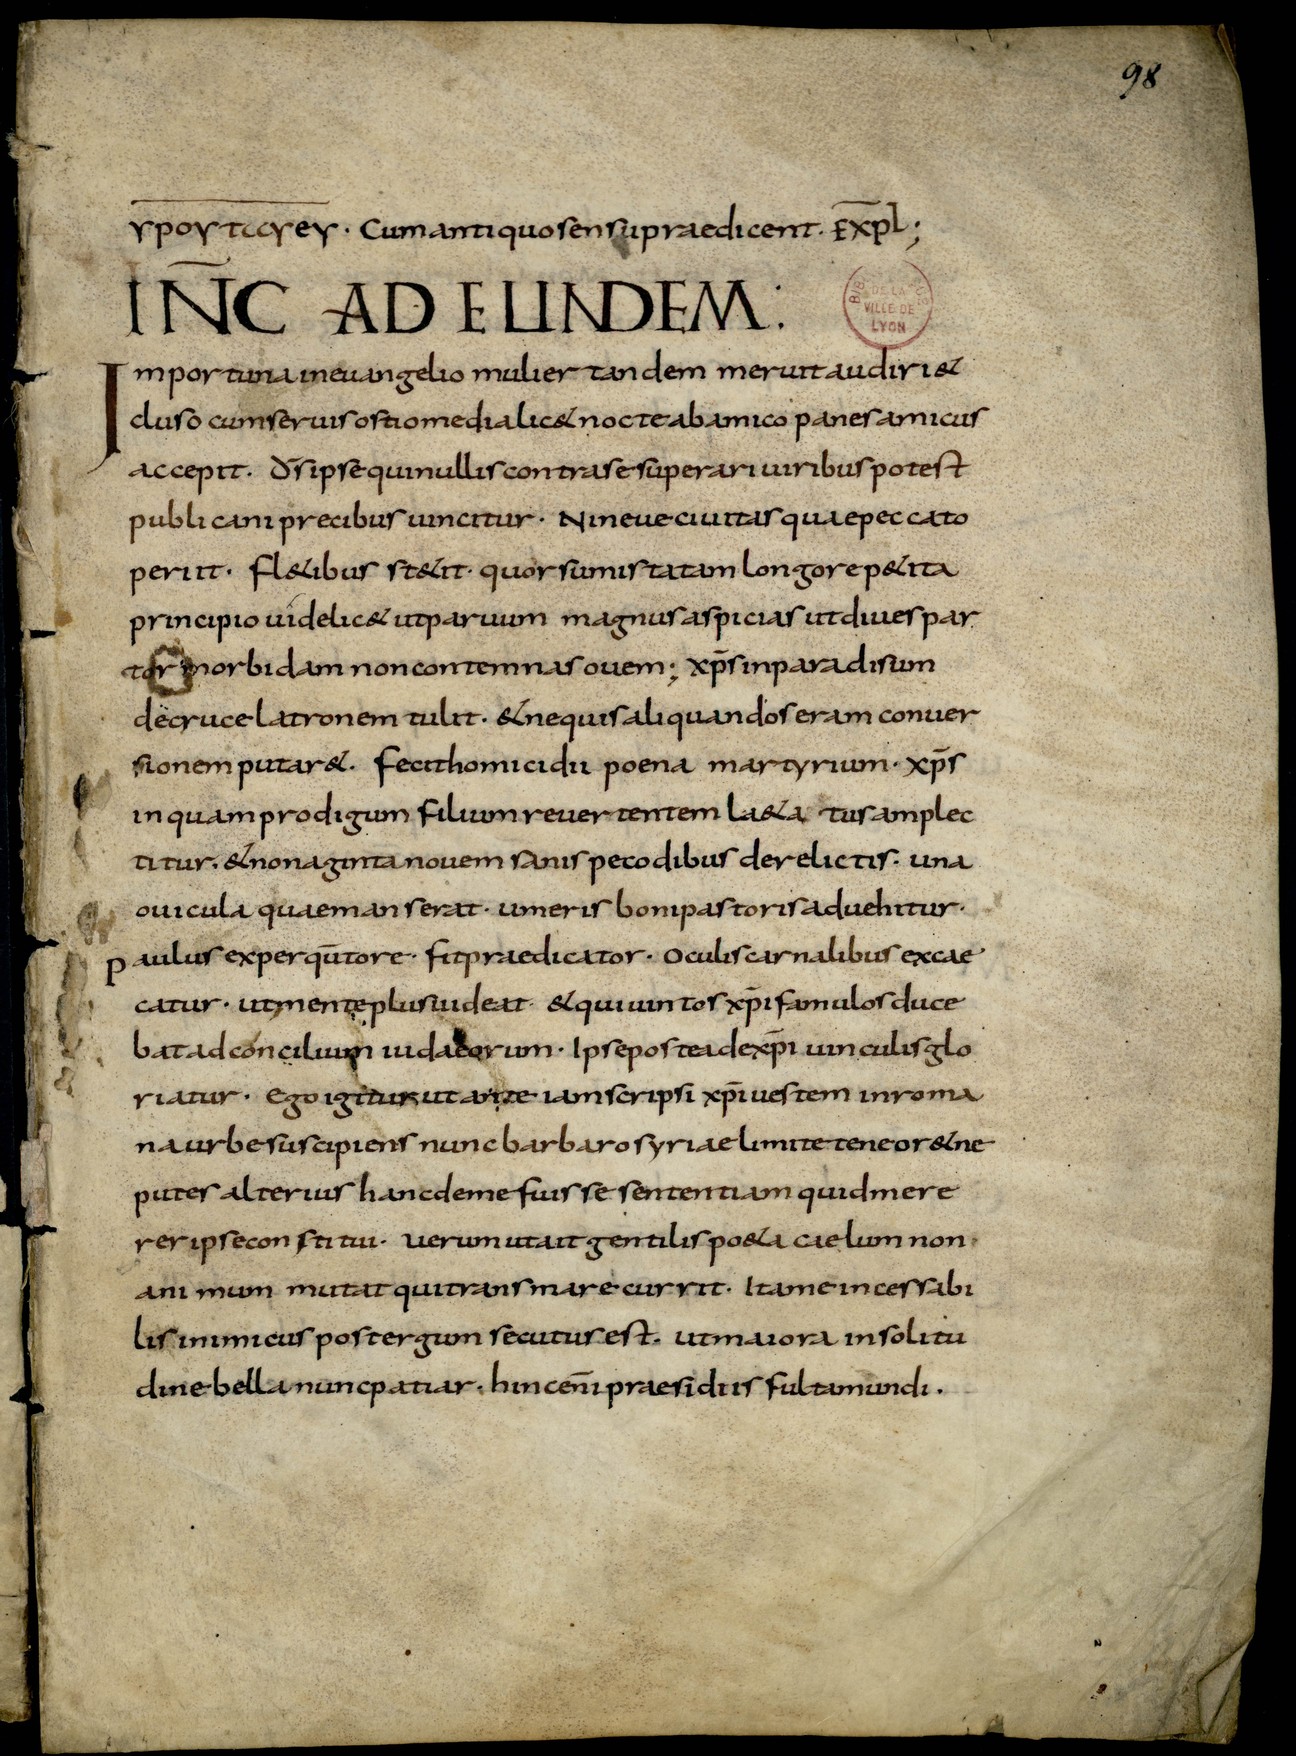 98
ypoγτιcγeγ · Cum antiquo sensu praedicent. Exp̅l;
IN̅C AD EUNDEM:
BIB DE LA VILLE DE LYON
Importuna in euangelio mulier tandem meruit audiri &
cluso cum seruis ostio media lic& nocte ab amico panes amicus
accepit. Ds̅ ipse qui nullis contra se superari uiribus potest
publicani precibus uincitur · Nineue ciuitas quae peccato
periit · fl&ibus st&it · quorsum ista tam longo rep&ita
principio uidelic& ut paruum magnus aspicias ut diues par
tor morbidam non contemnas ouem; xp̅s in paradisum
de cruce latronem tulit · & ne quis aliquando seram conuer
sionem putar& · fecit homicidii poena martyrium · xp̅s
inquam prodigum filium reuertentem la&a tus amplec
titur · & nonaginta nouem sanis pecodibus derelictis · una
ouicula quae manserat · umeris boni pastoris aduehitur ·
Paulus ex perqūtore · fit praedicator · Oculis carnalibus excae
catur · ut mente plus uideat & qui uintos xp̅i famulos duce
bat ad concilium iudaeorum · Ipse postea de xp̅i uinculis glo
riatur · Ego igitur ut ante iam scripsi xp̅i uestem in roma
na urbe suscipiens nunc barbaro syriae limite teneor & ne
putes alterius hanc de me fuisse sententiam quid mere
rer ipse constitui · uerum ut ait gentilis po&a caelum non
animum mutat qui trans mare currit · Ita me incessabi
lis inimicus post ergum secutus est · ut maiora in solitu
dine bella nunc patiar · hinc en̅i praesidiis fulta mundi ·